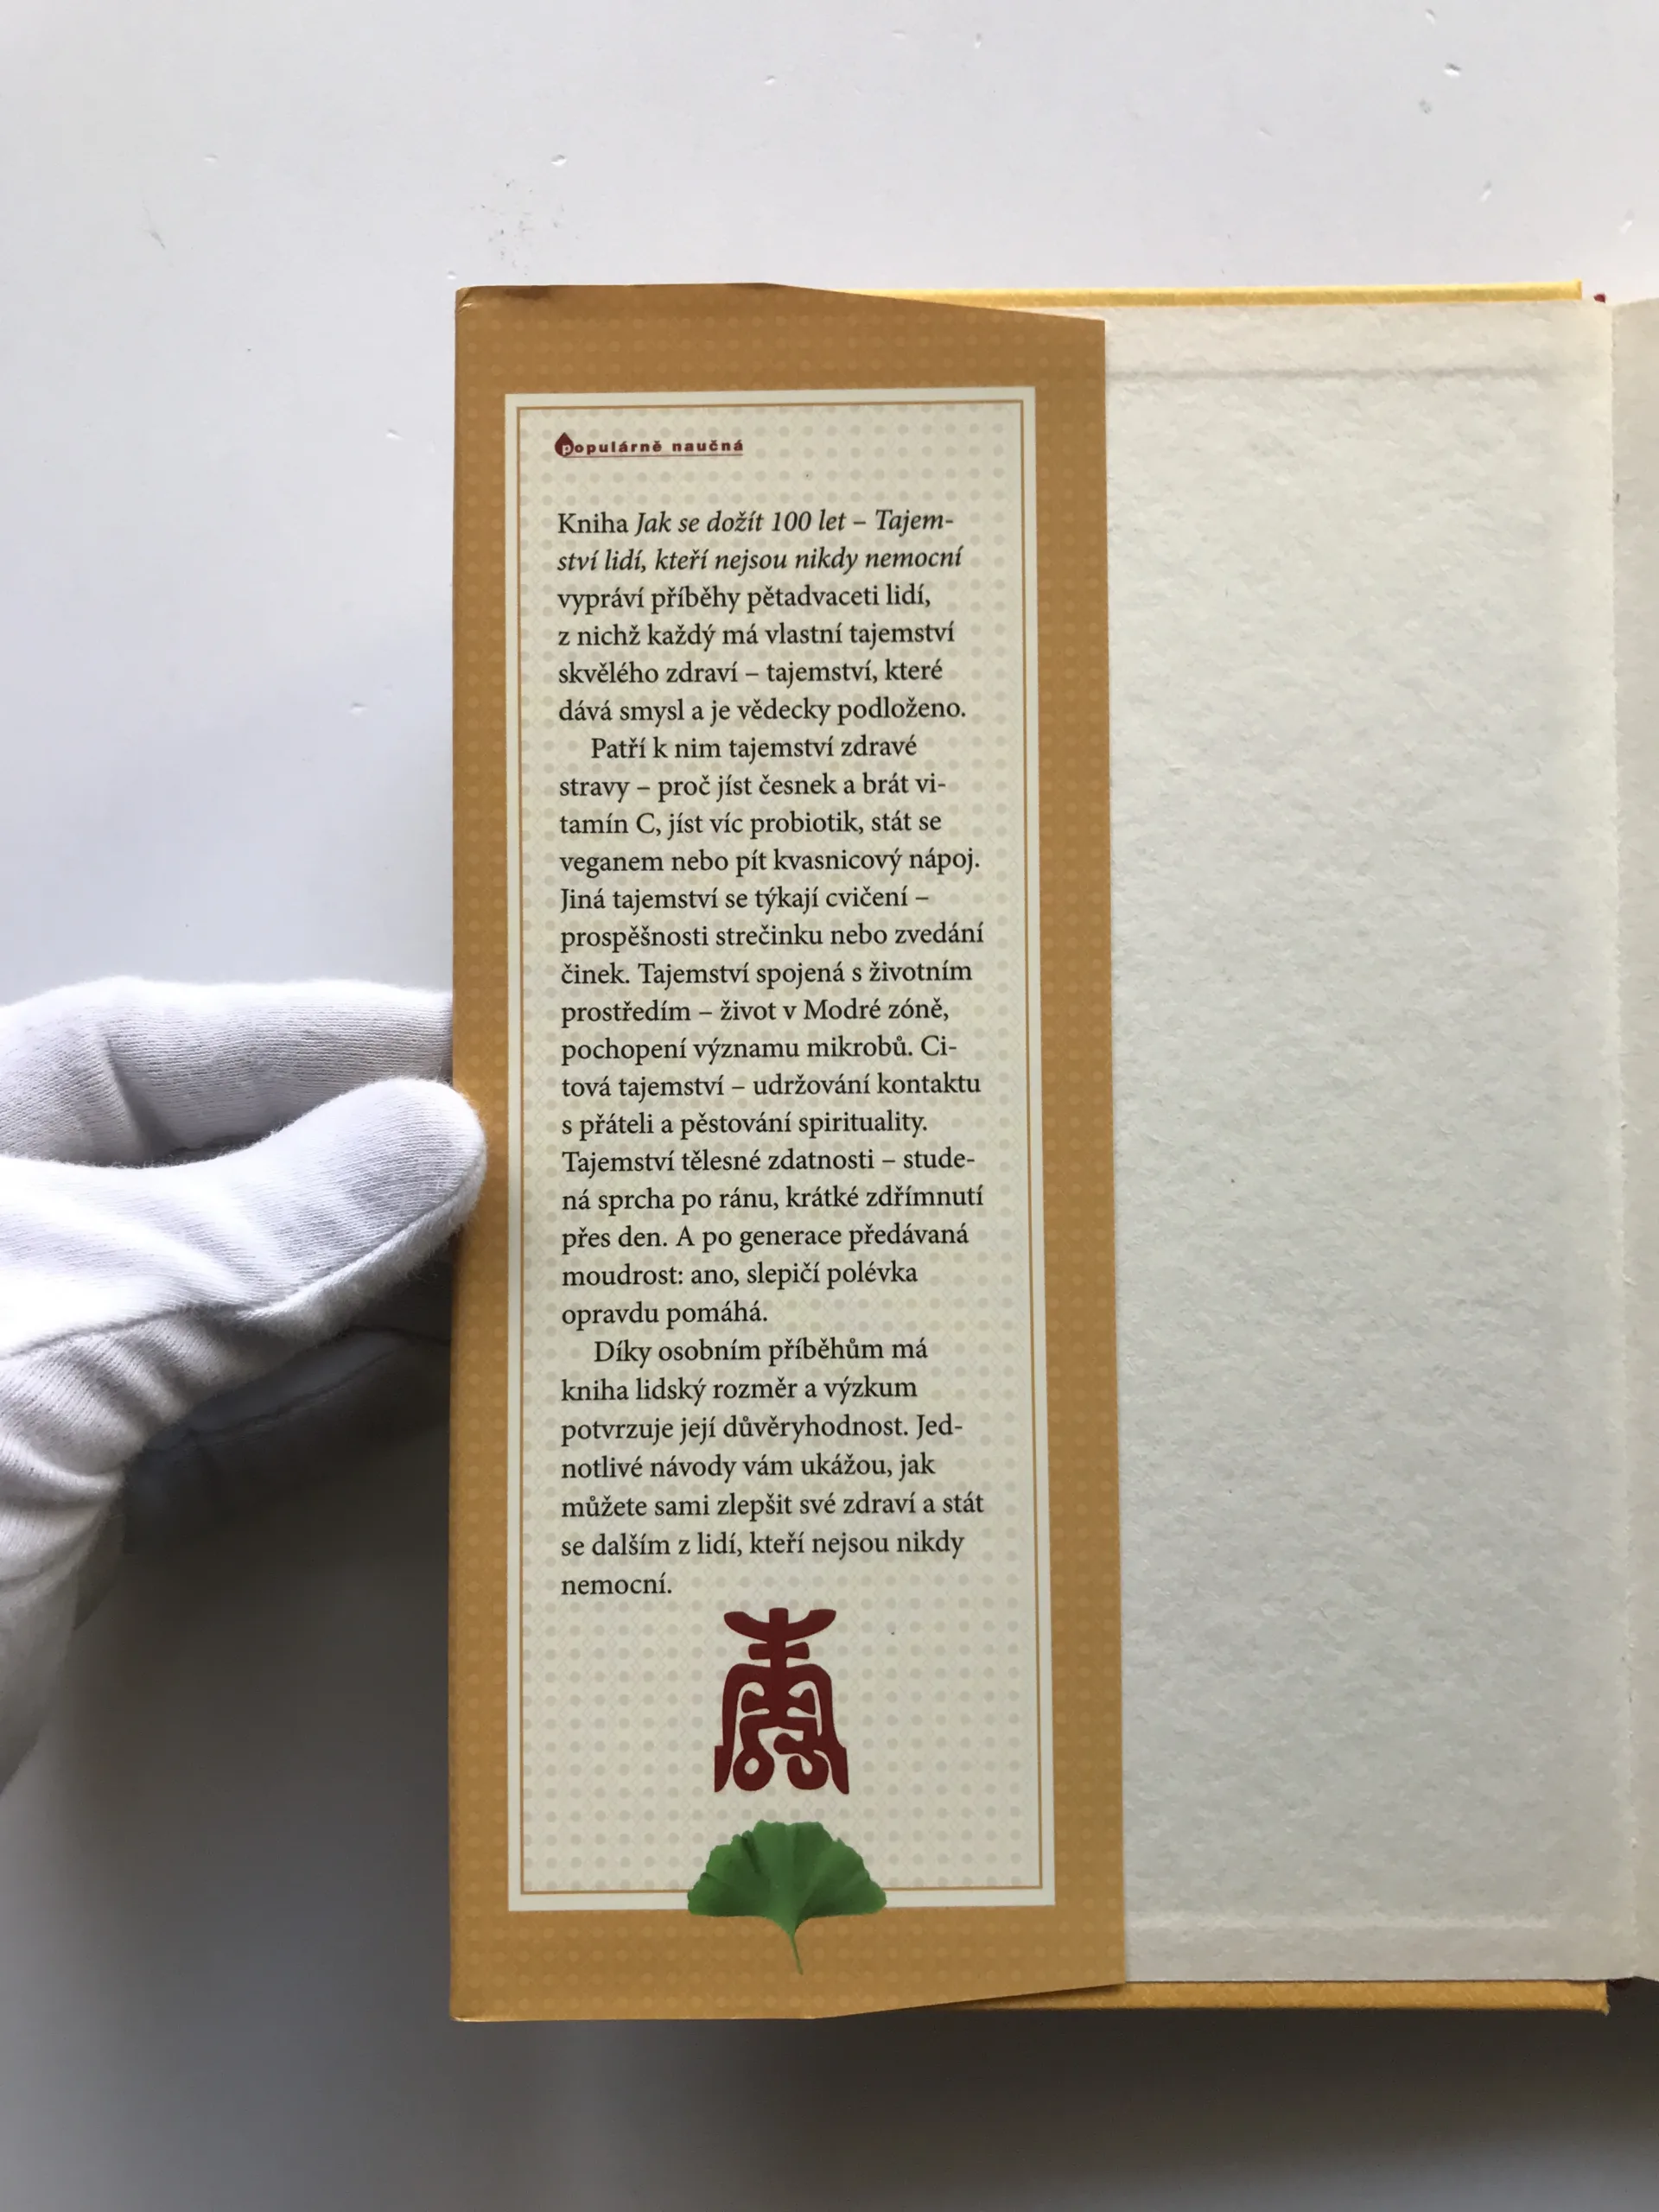 populárně naučná
Kniha Jak se dožít 100 let – Tajem-
ství lidí, kteří nejsou nikdy nemocní
vypráví příběhy pětadvaceti lidí,
z nichž každý má vlastní tajemství
skvělého zdraví – tajemství, které
dává smysl a je vědecky podloženo.
Patří k nim tajemství zdravé
stravy – proč jíst česnek a brát vi-
tamín C, jíst víc probiotik, stát se
veganem nebo pít kvasnicový nápoj.
Jiná tajemství se týkají cvičení –
prospěšnosti strečinku nebo zvedání
činek. Tajemství spojená s životním
prostředím – život v Modré zóně,
pochopení významu mikrobů. Ci-
tová tajemství – udržování kontaktu
s přáteli a pěstování spirituality.
Tajemství tělesné zdatnosti – stude-
ná sprcha po ránu, krátké zdřímnutí
přes den. A po generace předávaná
moudrost: ano, slepičí polévka
opravdu pomáhá.
Díky osobním příběhům má
kniha lidský rozměr a výzkum
potvrzuje její důvěryhodnost. Jed-
notlivé návody vám ukážou, jak
můžete sami zlepšit své zdraví a stát
se dalším z lidí, kteří nejsou nikdy
nemocní.